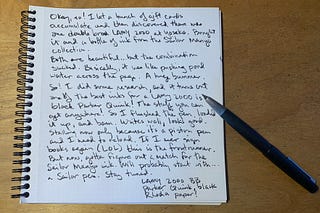 Okay, so! I let a bunch of gift cards
accumulate and then discovered there was
one double broad LAMY 2000 at Yoseka. Bought
it and a bottle of ink from the Sailor Manyo
collection.
Both are beautiful... but the combination
sucked. Basically, it was like pushing pond
water across the page. A huge bummer.
So! I did some research, and it turns out
one of the best inks for a LAMY 2000 is
black Parker Quink! The stuff you can
get anywhere! So I flushed the pen, loaded
it up, and bam. Writes well, looks good.
Stalling now only because it's a piston pen
and I need to reload. If I ever sign
books again (LOL) this is the frontrunner.
But now, gotta figure out a match for the
Sailor Manyo ink. Will probably start with...
a Sailor pen. Stay tuned.
LAMY 2000 BB
Parker Quink, black
Rhodia paper!